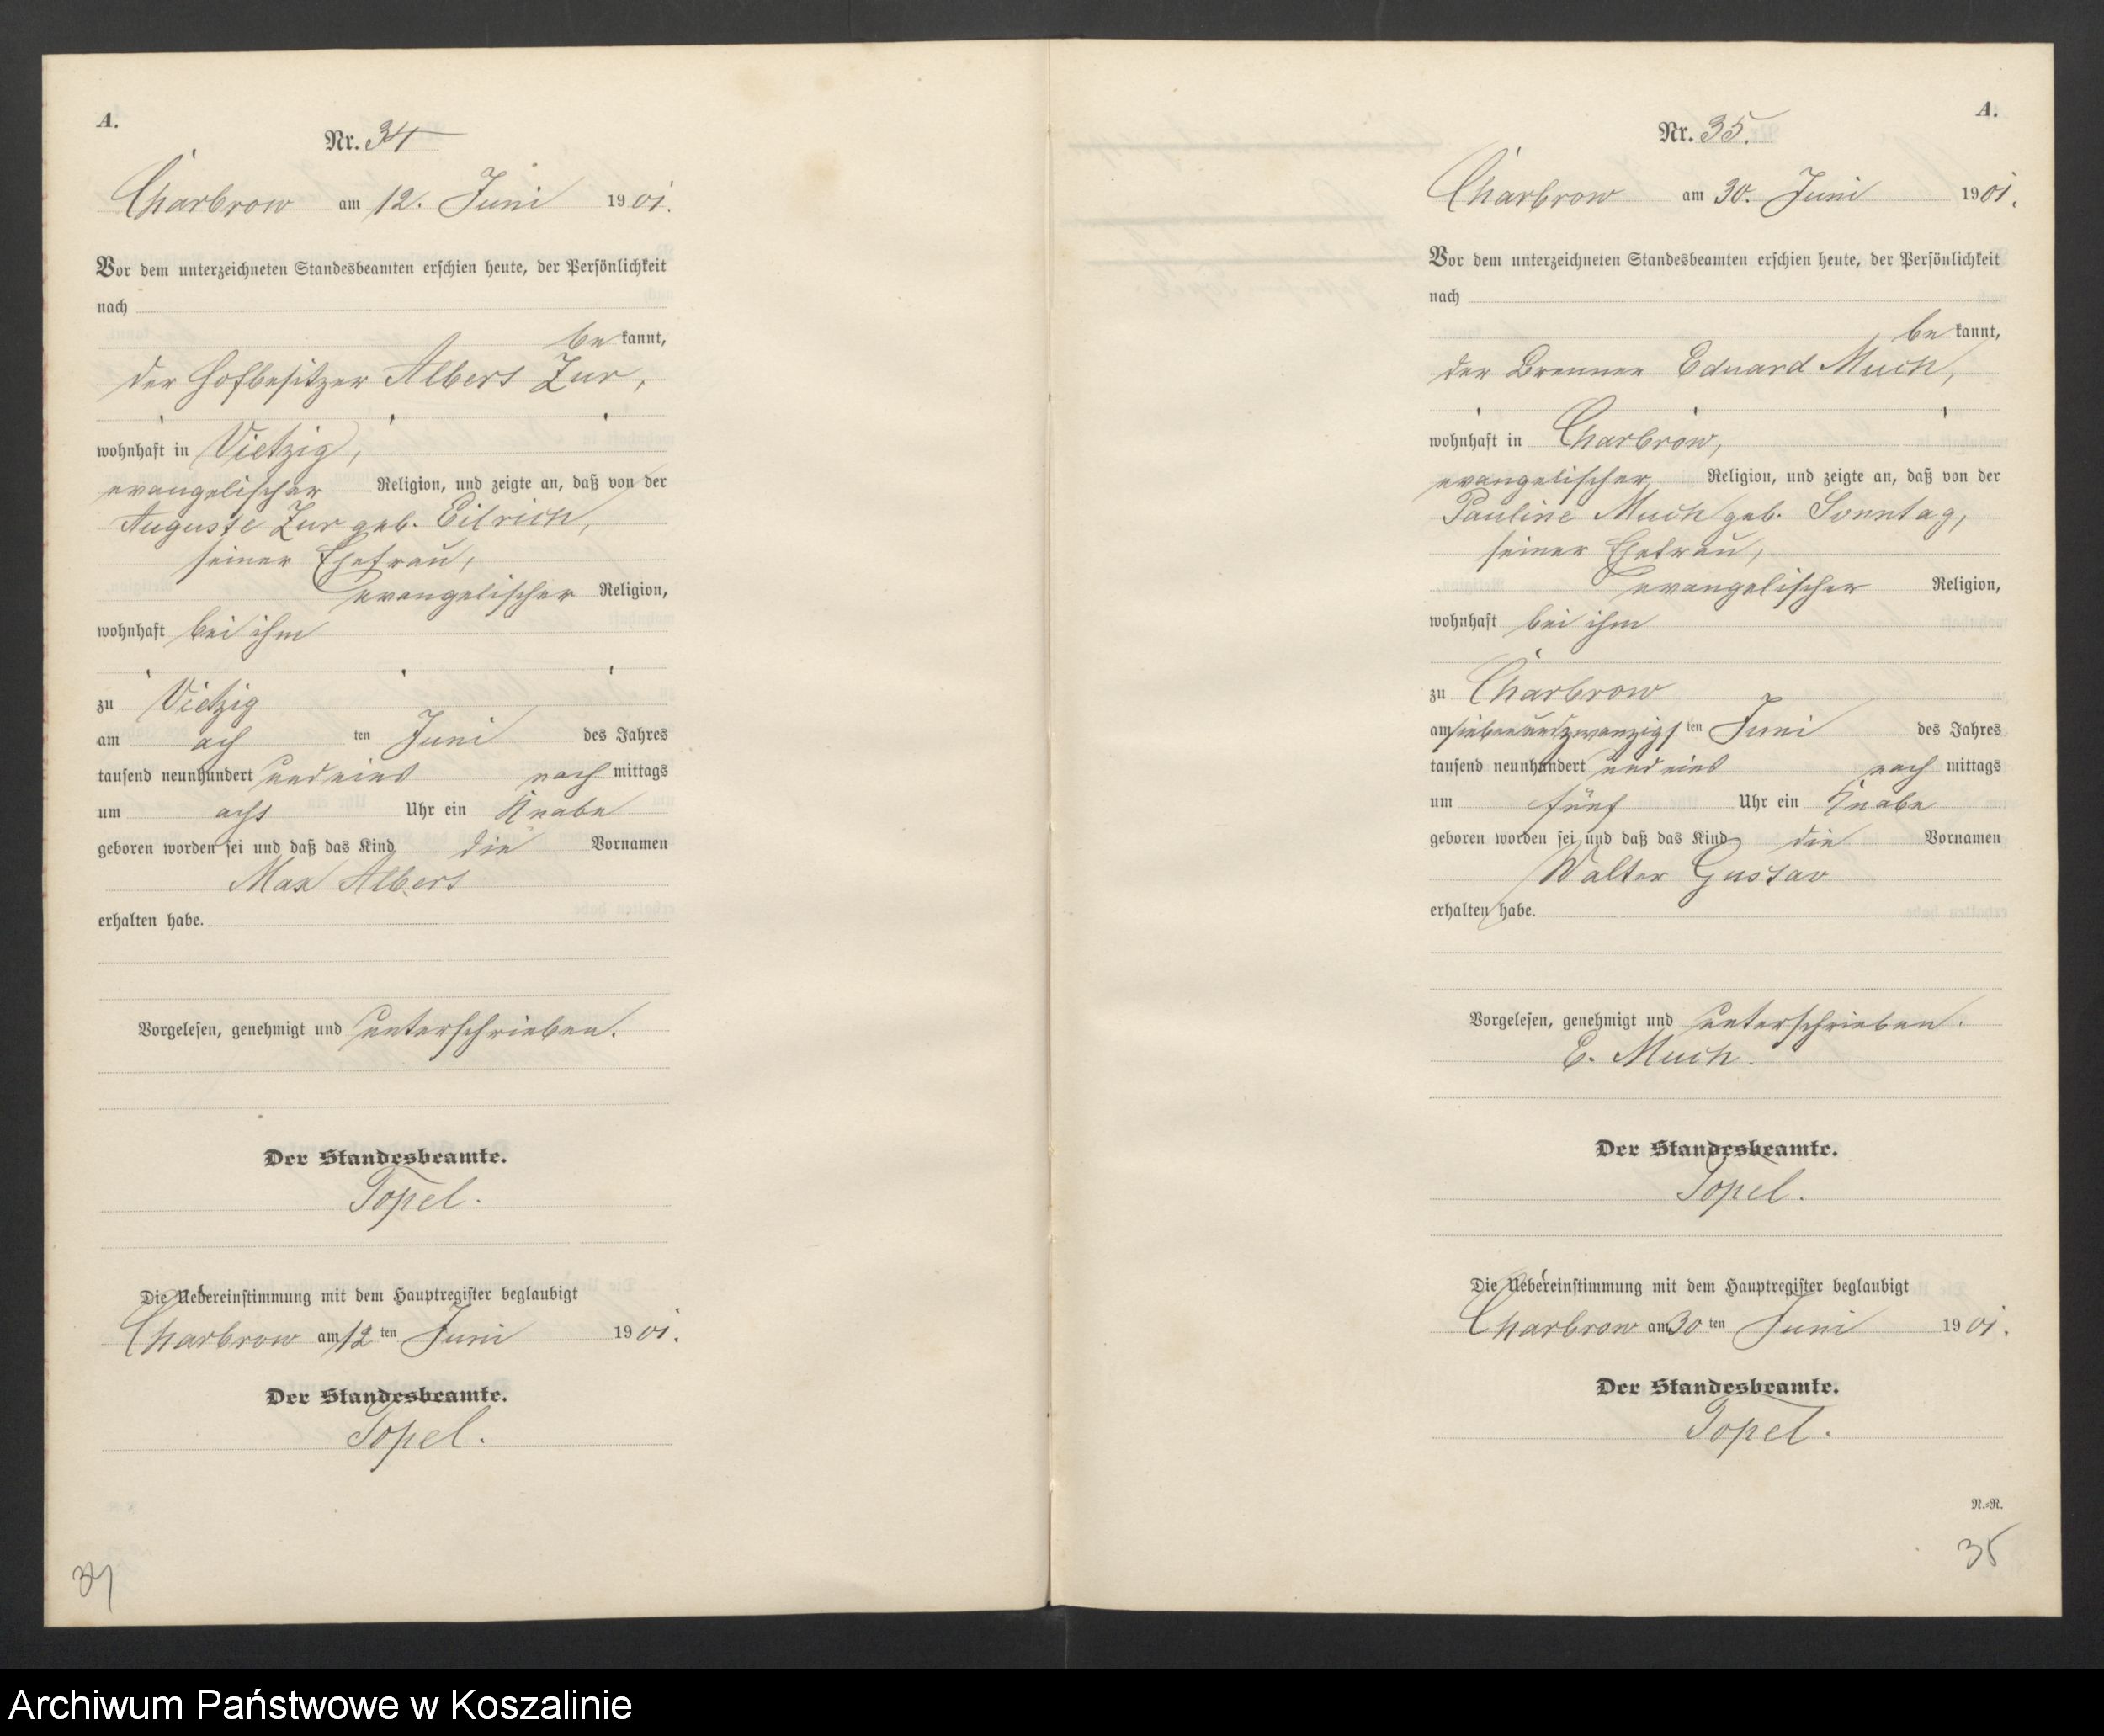 A.
Nr. 34
Charbrow am 12. Juni 1901.
Vor dem unterzeichneten Standesbeamten erschien heute, der Persönlichkeit
nach
be kannt,
der Hofbesitzer Albert Zur,
wohnhaft in Vietzig,
evangelischer Religion, und zeigte an, daß von der
Auguste Zur geb. Eilrich,
seiner Ehefrau,
evangelischer Religion,
wohnhaft bei ihm
zu Vietzig
am ach ten Juni des Jahres
tausend neunhundert und eins nach mittags
um acht Uhr ein Knabe
geboren worden sei und daß das Kind die Vornamen
Max Albert
erhalten habe.
Vorgelesen, genehmigt und unterschrieben.
Der Standesbeamte.
Topel.
Die Uebereinstimmung mit dem Hauptregister beglaubigt
Charbrow am 12 ten Juni 1901.
Der Standesbeamte.
Topel.
34
A.
Nr. 35.
Charbrow am 30. Juni 1901.
Vor dem unterzeichneten Standesbeamten erschien heute, der Persönlichkeit
nach
be kannt,
der Brenner Eduard Much,
wohnhaft in Charbrow,
evangelischer Religion, und zeigte an, daß von der
Pauline Much geb. Sonntag,
seiner Ehefrau,
evangelischer Religion,
wohnhaft bei ihm
zu Charbrow
am siebenundzwanzigs ten Juni des Jahres
tausend neunhundert und eins nach mittags
um fünf Uhr ein Knabe
geboren worden sei und daß das Kind die Vornamen
Walter Gustav
erhalten habe.
Vorgelesen, genehmigt und unterschrieben.
E. Much.
Der Standesbeamte.
Topel.
Die Uebereinstimmung mit dem Hauptregister beglaubigt
Charbrow am 30 ten Juni 1901.
Der Standesbeamte.
Topel.
N.-R.
35
Archiwum Państwowe w Koszalinie